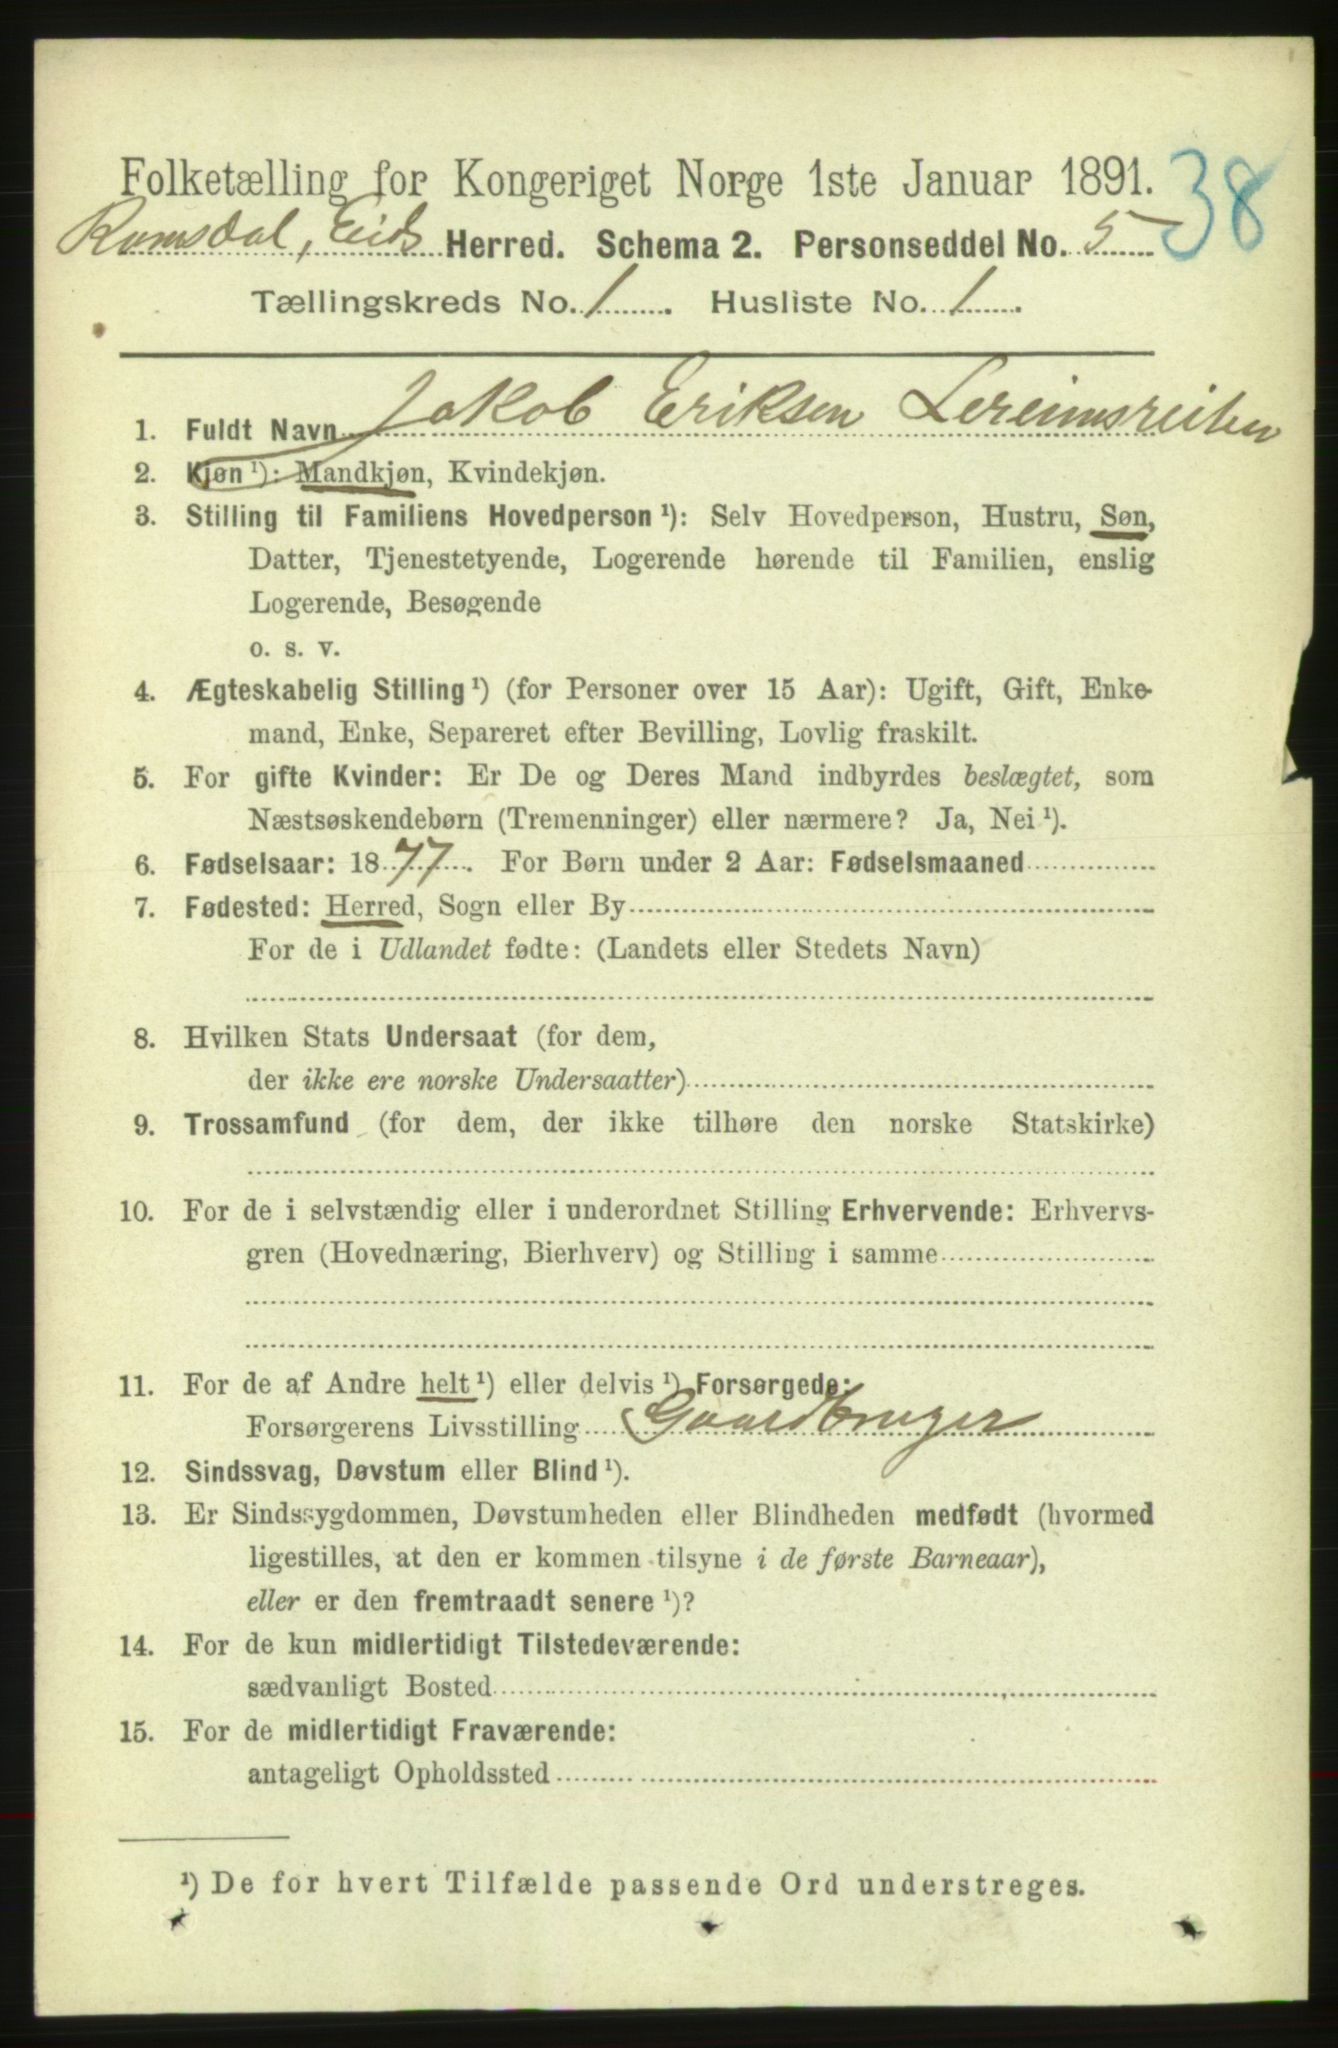 Folketælling for Kongeriget Norge 1ste Januar 1891.
38
Romsdal, Eids Herred. Schema 2. Personseddel No. 5
Tællingskreds No. 1. Husliste No. 1.
1. Fuldt Navn Jakob Eriksen Lereimsreiten
2. Kjøn ¹): Mandkjøn, Kvindekjøn.
3. Stilling til Familiens Hovedperson ¹): Selv Hovedperson, Hustru, Søn,
Datter, Tjenestetyende, Logerende hørende til Familien, enslig
Logerende, Besøgende
o. s. v.
4. Ægteskabelig Stilling ¹) (for Personer over 15 Aar): Ugift, Gift, Enke-
mand, Enke, Separeret efter Bevilling, Lovlig fraskilt.
5. For gifte Kvinder: Er De og Deres Mand indbyrdes beslægtet, som
Næstsøskendebørn (Tremenninger) eller nærmere? Ja, Nei ¹).
6. Fødselsaar: 1877. For Børn under 2 Aar: Fødselsmaaned
7. Fødested: Herred, Sogn eller By
For de i Udlandet fødte: (Landets eller Stedets Navn)
8. Hvilken Stats Undersaat (for dem,
der ikke ere norske Undersaatter)
9. Trossamfund (for dem, der ikke tilhøre den norske Statskirke)
10. For de i selvstændig eller i underordnet Stilling Erhvervende: Erhvervs-
gren (Hovednæring, Bierhverv) og Stilling i samme
11. For de af Andre helt ¹) eller delvis ¹) Forsørgede:
Forsørgerens Livsstilling Gaardbruger
12. Sindssvag, Døvstum eller Blind ¹).
13. Er Sindssygdommen, Døvstumheden eller Blindheden medfødt (hvormed
ligestilles, at den er kommen tilsyne i de første Barneaar),
eller er den fremtraadt senere ¹)?
14. For de kun midlertidigt Tilstedeværende:
sædvanligt Bosted
15. For de midlertidigt Fraværende:
antageligt Opholdssted
¹) De for hvert Tilfælde passende Ord understreges.